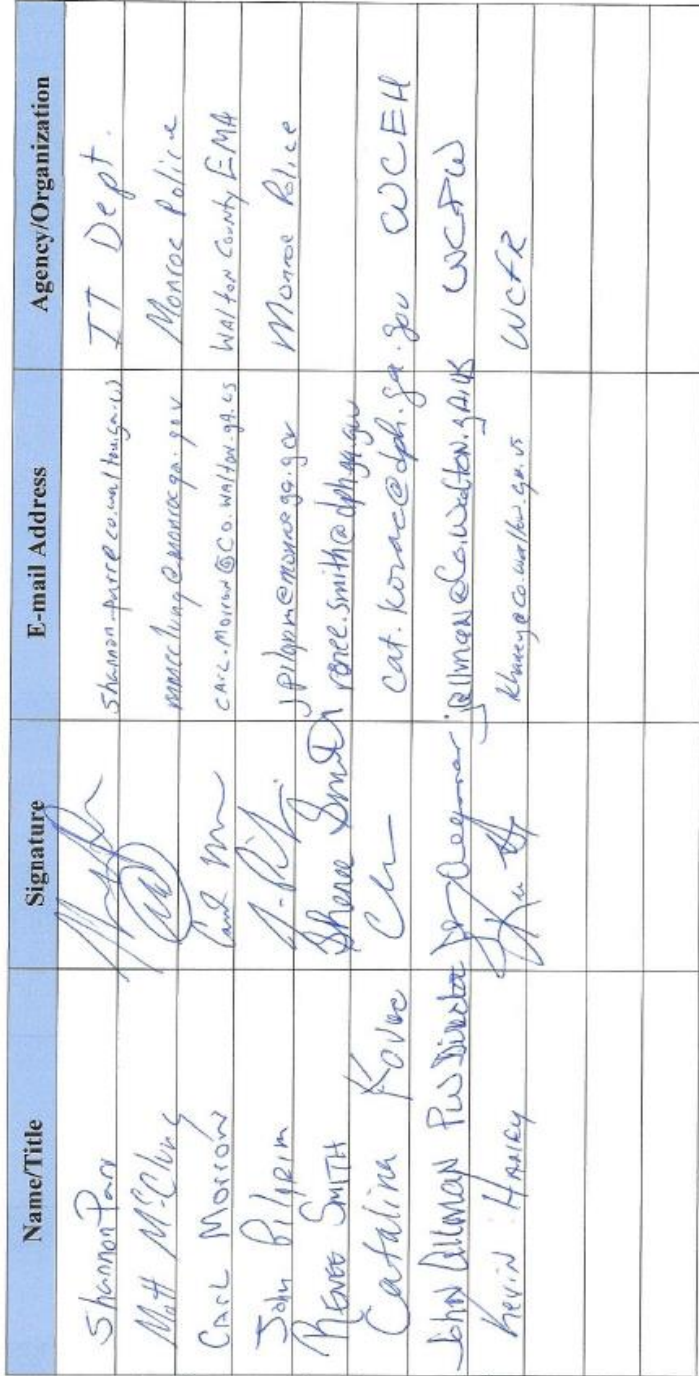 Name/Title Signature E-mail Address Agency/Organization
Shannon Parr shannon.parr@co.walton.ga.us IT Dept.
Matt McClung mmcclung@monroega.gov Monroe Police
Carl Morrow carl.morrow@co.walton.ga.us Walton County EMA
John Pilgrim jpilgrim@monroega.gov Monroe Police
Renee Smith Sheree Smith renee.smith@dph.ga.gov
Catalina Kovac cat.kovac@dph.ga.gov WCEH
John Allman PW Director jallman@co.walton.ga.us WCPW
Kevin Haney khaney@co.walton.ga.us WCFR